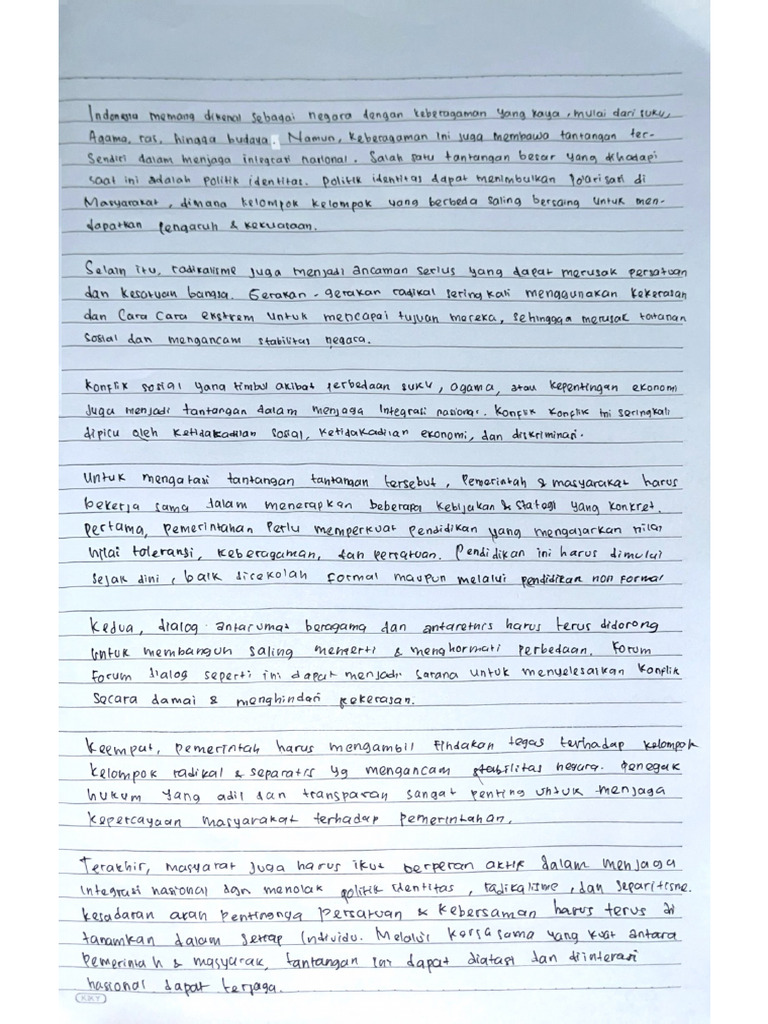 Indonesia memang dikenal sebagai negara dengan keberagaman yang kaya, mulai dari suku,
Agama, ras, hingga budaya. Namun, keberagaman ini juga membawa tantangan ter-
Sendiri dalam menjaga integrasi nasional. Salah satu tantangan besar yang dihadapi
saat ini adalah politik identitas. politik identitas dapat menimbulkan polarisasi di
Masyarakat, dimana kelompok kelompok yang berbeda saling bersaing untuk men-
dapatkan pengaruh & kekuataan.
Selain itu, radikalisme juga menjadi ancaman serius yang dapat merusak persatuan
dan kesatuan bangsa. Gerakan - gerakan radikal seringkali menggunakan kekerasan
dan cara cara ekstrem untuk mencapai tujuan mereka, sehingga merusak tatanan
sosial dan mengancam stabilitas negara.
Konflik sosial yang timbul akibat perbedaan suku, agama, atau kepentingan ekonomi
juga menjadi tantangan dalam menjaga integrasi nasional. Konflik konflik ini seringkali
dipicu oleh ketidakadilan sosial, ketidakadilan ekonomi, dan diskriminasi.
Untuk mengatasi tantangan tantangan tersebut, pemerintah & masyarakat harus
bekerja sama dalam menerapkan beberapa kebijakan & statogi yang konkret.
pertama, pemerintahan perlu memperkuat pendidikan yang mengajarkan nilai
nilai toleransi, keberagaman, dan persatuan. Pendidikan ini harus dimulai
sejak dini, baik disekolah formal maupun melalui pendidikan non formal
Kedua, dialog antarumat beragama dan antaretnis harus terus didorong
untuk membangun saling mengerti & menghormati perbedaan. Forum
forum dialog seperti ini dapat menjadi sarana untuk menyelesaikan konflik
secara damai & menghindari kekerasan.
Keempat, pemerintah harus mengambil tindakan tegas terhadap kelompok
kelompok radikal & separatis yg mengancam stabilitas negara. penegak
hukum yang adil dan transparan sangat penting untuk menjaga
kepercayaan masyarakat terhadap pemerintahan.
Terakhir, masyarat juga harus ikut berperan aktif dalam menjaga
integrasi nasional dgn menolak politik identitas, radikalisme, dan separitisme.
kesadaran akan pentingnya persatuan & kebersaman harus terus di
tanamkan dalam setiap individu. Melalui kerjasama yang kuat antara
pemerintah & masyarak, tantangan ini dapat diatasi dan diinterasi
nasional dapat terjaga.
KKY